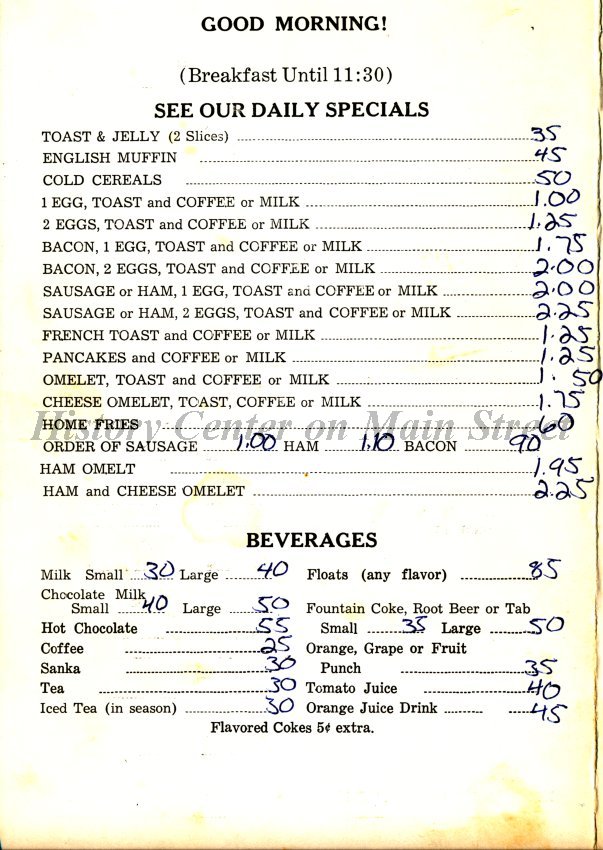 GOOD MORNING!
(Breakfast Until 11:30)
SEE OUR DAILY SPECIALS
TOAST & JELLY (2 Slices) 35
ENGLISH MUFFIN 45
COLD CEREALS 50
1 EGG, TOAST and COFFEE or MILK 1.00
2 EGGS, TOAST and COFFEE or MILK 1.25
BACON, 1 EGG, TOAST and COFFEE or MILK 1.75
BACON, 2 EGGS, TOAST and COFFEE or MILK 2.00
SAUSAGE or HAM, 1 EGG, TOAST and COFFEE or MILK 2.00
SAUSAGE or HAM, 2 EGGS, TOAST and COFFEE or MILK 2.25
FRENCH TOAST and COFFEE or MILK 1.25
PANCAKES and COFFEE or MILK 1.25
OMELET, TOAST and COFFEE or MILK 1.50
CHEESE OMELET, TOAST, COFFEE or MILK 1.75
HOME FRIES 60
History Center on Main Street
ORDER OF SAUSAGE 1.00 HAM 1.10 BACON 90
HAM OMELT 1.95
HAM and CHEESE OMELET 2.25
BEVERAGES
Milk Small 30 Large 40
Chocolate Milk
Small 40 Large 50
Hot Chocolate 55
Coffee 25
Sanka 30
Tea 30
Iced Tea (in season) 30
Floats (any flavor) 85
Fountain Coke, Root Beer or Tab
Small 35 Large 50
Orange, Grape or Fruit
Punch 35
Tomato Juice 40
Orange Juice Drink 45
Flavored Cokes 5¢ extra.